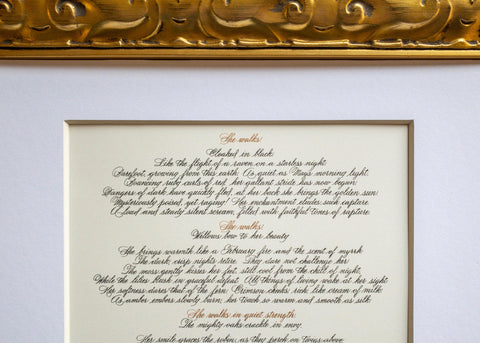 She walks:
Cloaked in black;
Like the flight of a raven on a starless night.
Barefoot, growing from this earth. As quiet as May's morning light.
Bouncing ruby curls of red, her gallant stride has now begun;
Dangers of dark have quietly fled, at her back she brings the golden sun.
Mysteriously poised, yet raging! Her enchantment eludes such capture.
A loud and steady silent scream, filled with faithful tones of rapture.
She walks:
Willows bow to her beauty.
She brings warmth like a February fire and the scent of myrrh.
The dark, crisp nights retire. They dare not challenge her.
The moss gently kisses her feet, still cool from the chill of night,
While the lilies blush in graceful defeat. All things of living wake at her sight.
Her softness dares that of the fern. Crimson cheeks, rich like cream of milk.
As amber embers slowly burn, her touch so warm and smooth as silk.
She walks in quiet strength:
The mighty oaks crackle in envy.
Her smile graces the robin, as they perch on twigs above